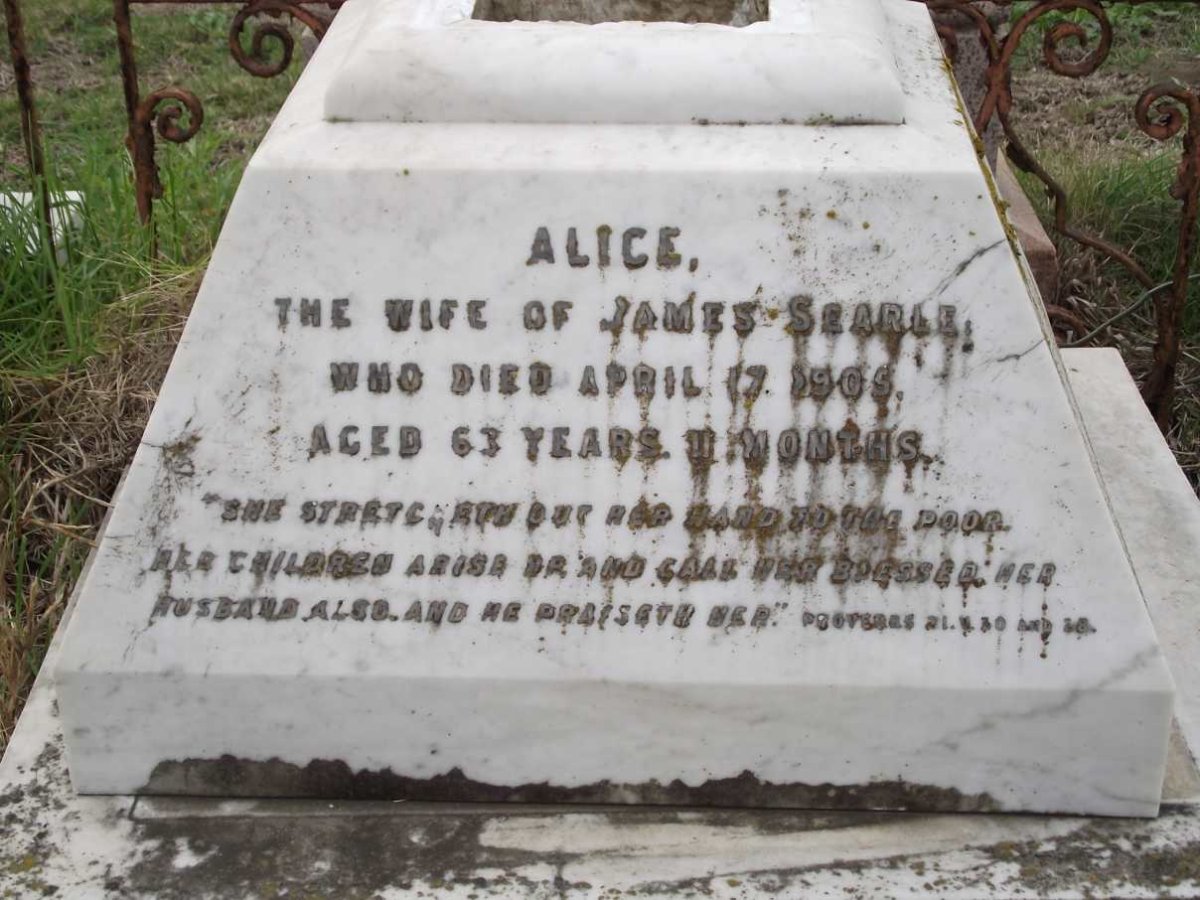 ALICE,
THE WIFE OF JAMES SEARLE,
WHO DIED APRIL 17 1905,
AGED 63 YEARS. 11 MONTHS.
"SHE STRETCHETH OUT HER HAND TO THE POOR.
HER CHILDREN ARISE UP, AND CALL HER BLESSED, HER
HUSBAND, ALSO, AND HE PRAISETH HER." PROVERBS 31. V. 20 AND 28.